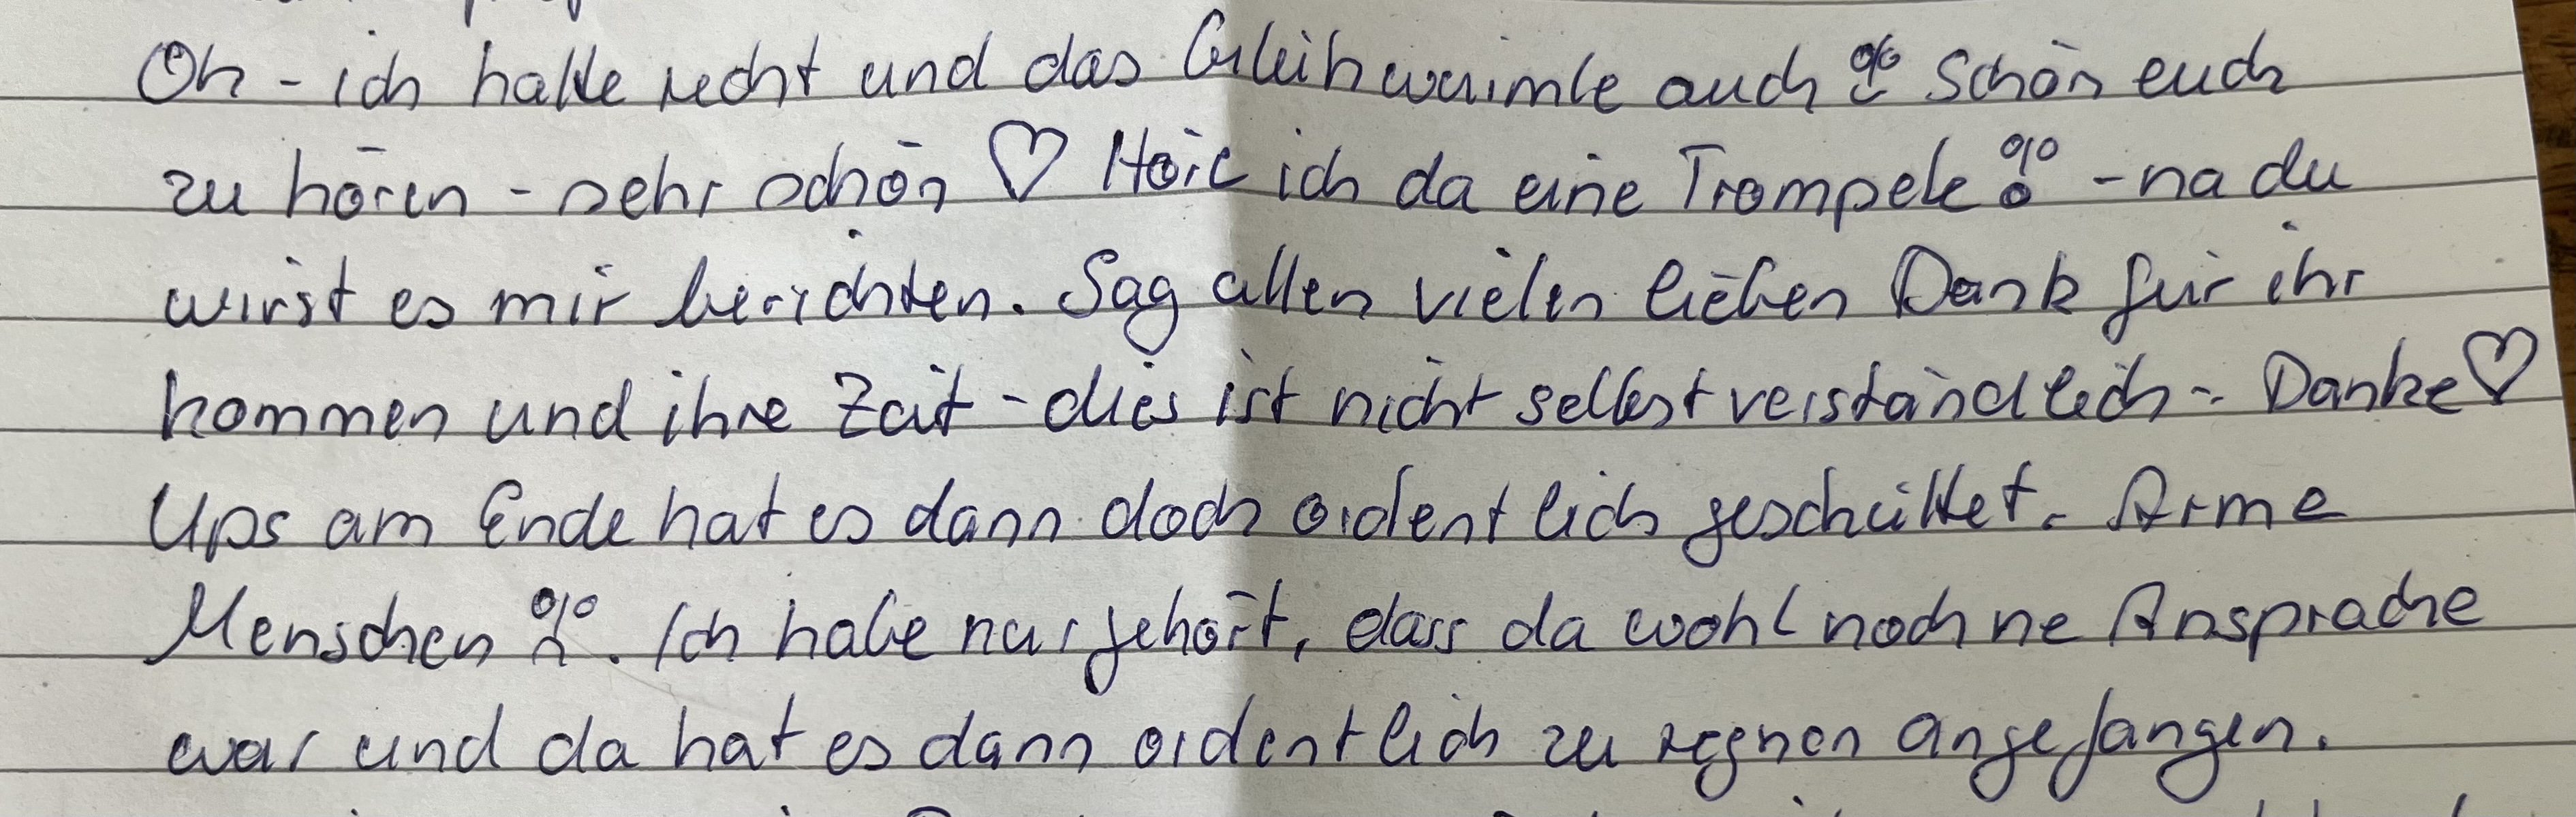 Oh - ich hatte recht und das auch Schön euch
zu hören - sehr schön ♡ Hör ich da eine Trompete - na du
wirst es mir berichten. Sag allen vielen lieben Dank für ihr
kommen und ihre Zeit - dies ist nicht selbstverständlich - Danke ♡
Ups am Ende hat es dann doch ordentlich geschüttet. Arme
Menschen. Ich habe nur gehört, dass da wohl noch ne Ansprache
war und da hat es dann ordentlich zu regnen angefangen.